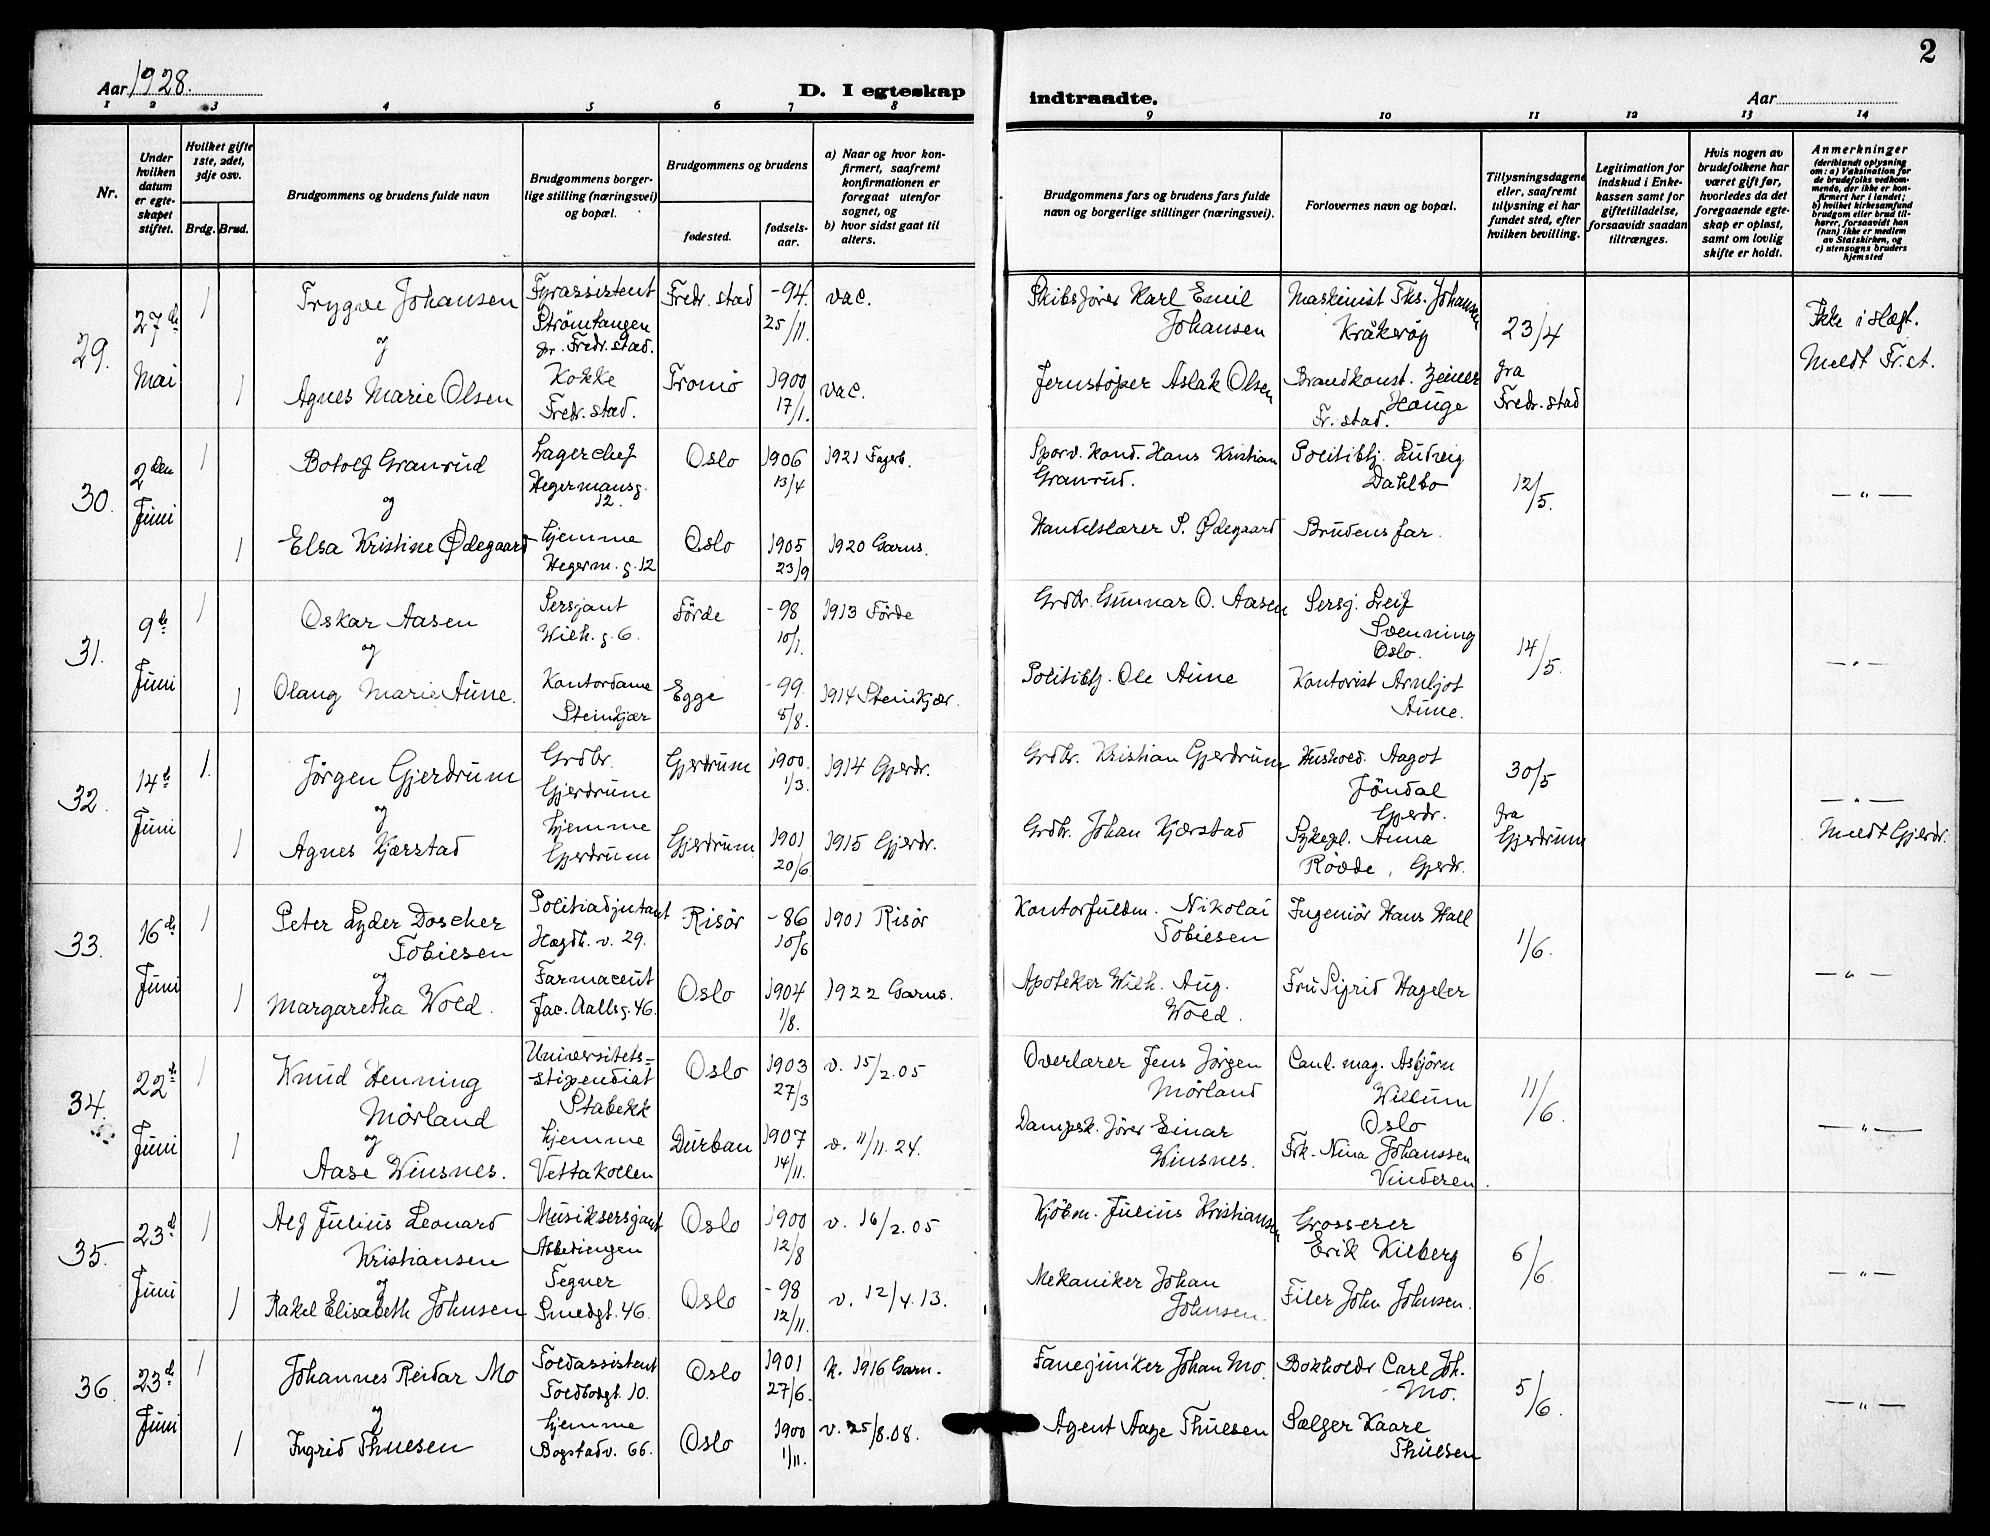 2
Aar 1928.
D. I egteskap
indtraadte.
Aar
1 2 3 4 5 6 7 8
9 10 11 12 13 14
Nr.
Under hvilken datum er egteskapet stiftet.
Hvilket gifte 1ste, 2det, 3dje osv.
Brdg. Brud.
Brudgommens og brudens fulde navn
Brudgommens borgerlige stilling (næringsvei) og bopæl.
Brudgommens og brudens
fødested.
fødselsaar.
a) Naar og hvor konfirmert, saafremt konfirmationen er foregaat utenfor sognet, og
b) hvor sidst gaat til alters.
Brudgommens fars og brudens fars fulde navn og borgerlige stillinger (næringsvei).
Forlovernes navn og bopæl.
Tillysningsdagene eller, saafremt tillysning ei har fundet sted, efter hvilken bevilling.
Legitimation for indskud i Enkekassen samt for giftetilladelse, forsaavidt saadan tiltrænges.
Hvis nogen av brudefolkene har været gift før, hvorledes da det foregaaende egteskap er opløst, samt om lovlig skifte er holdt.
Anmerkninger
(deriblandt oplysning om: a) Vaksination for de brudefolks vedkommende, der ikke er konfirmert her i landet; b) hvilket kirkesamfund brudgom eller brud tilhører, forsaavidt han (hun) ikke er medlem av Statskirken, og c) utensogns bruders hjemsted
29.
27de Mai
1
Trygve Johansen
og
Fyrassistent
Strömtangen
pr. Fredr.stad.
Fredr. stad
-94.
25/11.
vac.
Skibsfører Karl Emil
Johansen
Maskinist Ths. Johansen
Kråkerøy
23/4
Ikke i slegt.
1
Agnes Marie Olsen
Kokke
Fredr. stad.
Tromö
1900
17/1.
vac.
Jernstøper Aslak Olsen
Brandkonst. Zeiner
Hauge
Fr. stad.
fra
Fredr. stad
Meldt Fr.st.
30.
2den Juni
1
Botolf Granrud
og
Lagerchef
Hegermansg.
12.
Oslo
1906
13/4
1921 Fagerb.
Sporv. kond. Hans Kristian
Granrud.
Politibtj. Ludvig
Dahlbo
12/5.
— " —
1
Elsa Kristine Ødegaard
hjemme
Hegerm. g. 12
Oslo
1905
23/9
1920 Garns.
Handelslærer P. Ødegaard
Brudens far.
31.
9de Juni
1
Oskar Aasen
og
Sersjant
Wilh. g. 6.
Förde
-98
10/1.
1913 Förde
Grdbr. Gunnar O. Aasen
Sersj. Leif
Svenning
Oslo.
14/5.
— " —
1
Olaug Marie Aune.
Kontordame
Steinkjær
Egge
-99.
8/8.
1914 Steinkjær.
Politibtj. Ole Aune
Kontorist Arnljot
Aune.
32.
14de Juni
1.
Jörgen Gjerdrum
og
Grdbr.
Gjerdrum
Gjerdrum
1900.
1/3.
1914 Gjerdr.
Grdbr. Kristian Gjerdrum
Hushold. Aagot
Jöndal
Gjerdr.
30/5
— " —
1
Agnes Kjærstad
hjemme
Gjerdrum
Gjerdrum
1901
20/6
1915 Gjerdr.
Grdbr. Johan Kjærstad
Sykepl. Anna
Rövde, Gjerdr.
fra
Gjerdrum
Meldt Gjerdr.
33.
16de Juni
1
Peter Lyder Doscher
Tobiesen
og
Politiadjutant
Hegdh. v. 29.
Risör
-86
10/6
1901 Risör
Kontorfuldm. Nikolai
Tobiesen
Ingeniör Hans Hall
1/6.
— " —
1
Margaretha Wold.
Farmaceut
Jac. Aallsg. 46.
Oslo
1904
1/8.
1922 Garns.
Apoteker Wilh. Aug.
Wold.
Fru Sigrid Hageler
34.
22de Juni
1
Knud Henning
Mörland
og
Universitets-
stipendiat
Stabekk
Oslo
1903
27/3
v. 15/2.05
Overlærer Jens Jörgen
Mörland
Cand. mag. Asbjörn
Willum
Oslo
11/6.
— " —
1
Aase Winsnes.
hjemme
Vettakollen
Durban
1907
14/11.
v. 11/11. 24.
Dampsk. förer Einar
Winsnes.
Frk. Nina Johanssen
Vinderen.
35.
23de Juni
1
Alf Julius Leonard
Kristiansen
og
Musiksersjant
Abbediengen
Oslo
1900
12/8
v. 16/2.05
Kjöbm. Julius Kristiansen
Grosserer
Erik Kilberg
6/6.
— " —
1
Rakel Elisabeth Johnsen
Tegner
Smedgt. 46.
Oslo
-98
12/11.
v. 12/4. 13.
Mekaniker Johan
Johnsen.
Filer John Johnsen.
36.
23de Juni
1
Johannes Reidar Mo
og
Toldassistent
Toldbodgt. 10.
Oslo
1901
27/6.
k. 1916 Garn.
Fanejunker Johan Mo.
Bokholder Carl Joh.
Mo.
5/6.
— " —
1
Ingrid Thuesen
hjemme
Bogstadv. 66.
Oslo
1900
1/11.
v. 25/8.08.
Agent Aage Thuesen
Sælger Kaare
Thuesen